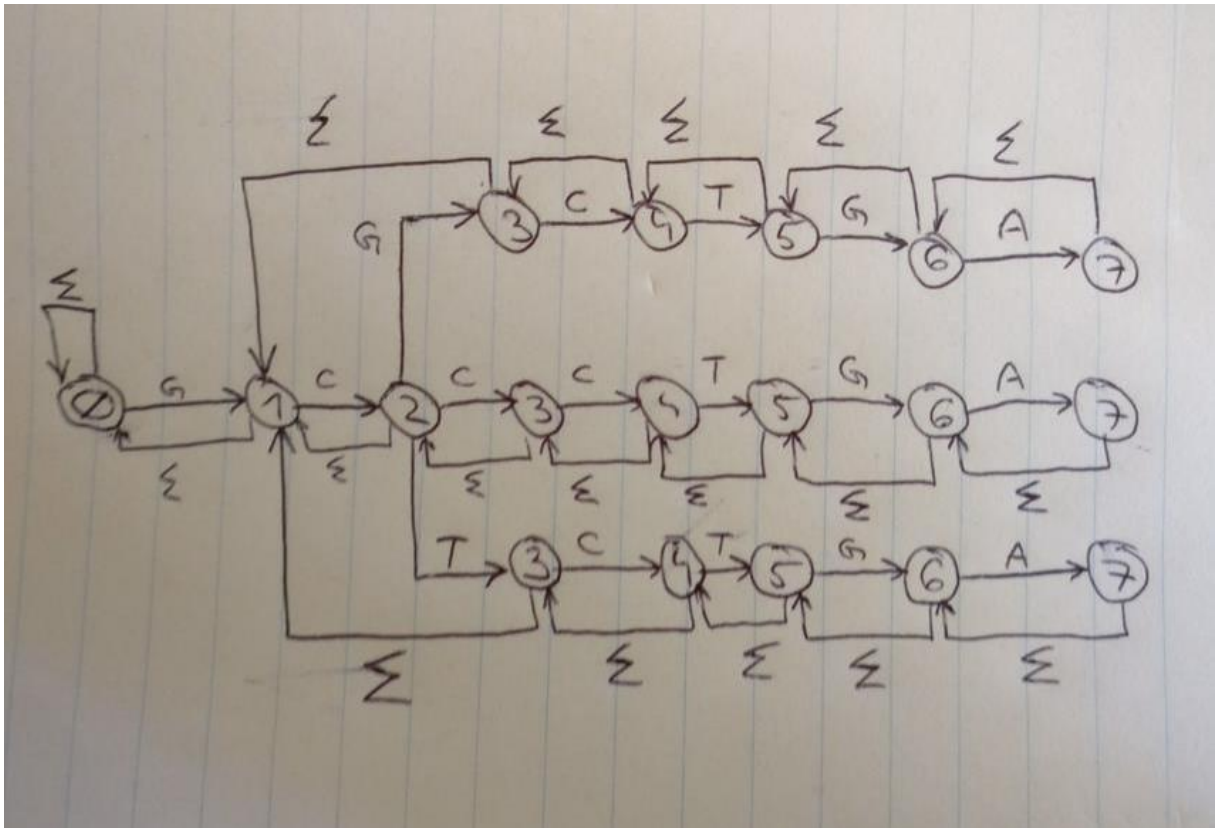 Σ Σ Σ Σ Σ
G 3 C 4 T 5 G 6 A 7
Σ
0 G 1 C 2 C 3 C 4 T 5 G 6 A 7
Σ Σ Σ Σ Σ Σ Σ
T 3 C 4 T 5 G 6 A 7
Σ Σ Σ Σ Σ